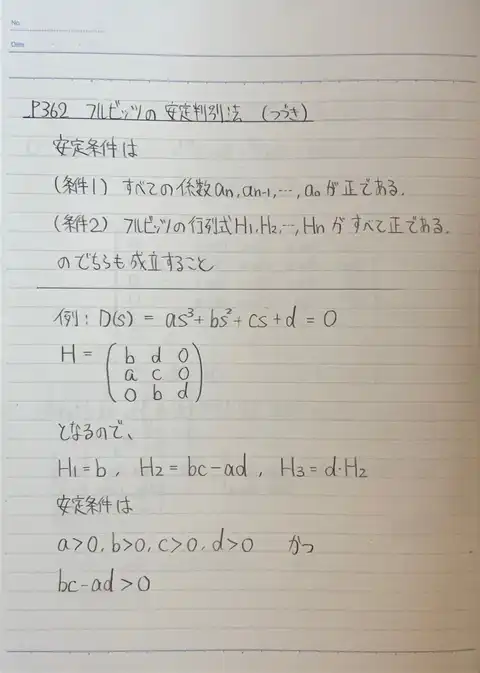 No.
Date
P362 フルビッツの安定判別法 (つづき)
安定条件は
(条件1) すべての係数an, an-1, …, a0が正である.
(条件2) フルビッツの行列式H1, H2, …, Hnがすべて正である.
のどちらも成立すること
例: D(s) = as³+bs²+cs+d = 0
H = ( b d 0
a c 0
0 b d )
となるので、
H1=b, H2=bc-ad, H3=d·H2
安定条件は
a>0, b>0, c>0, d>0 かつ
bc-ad>0